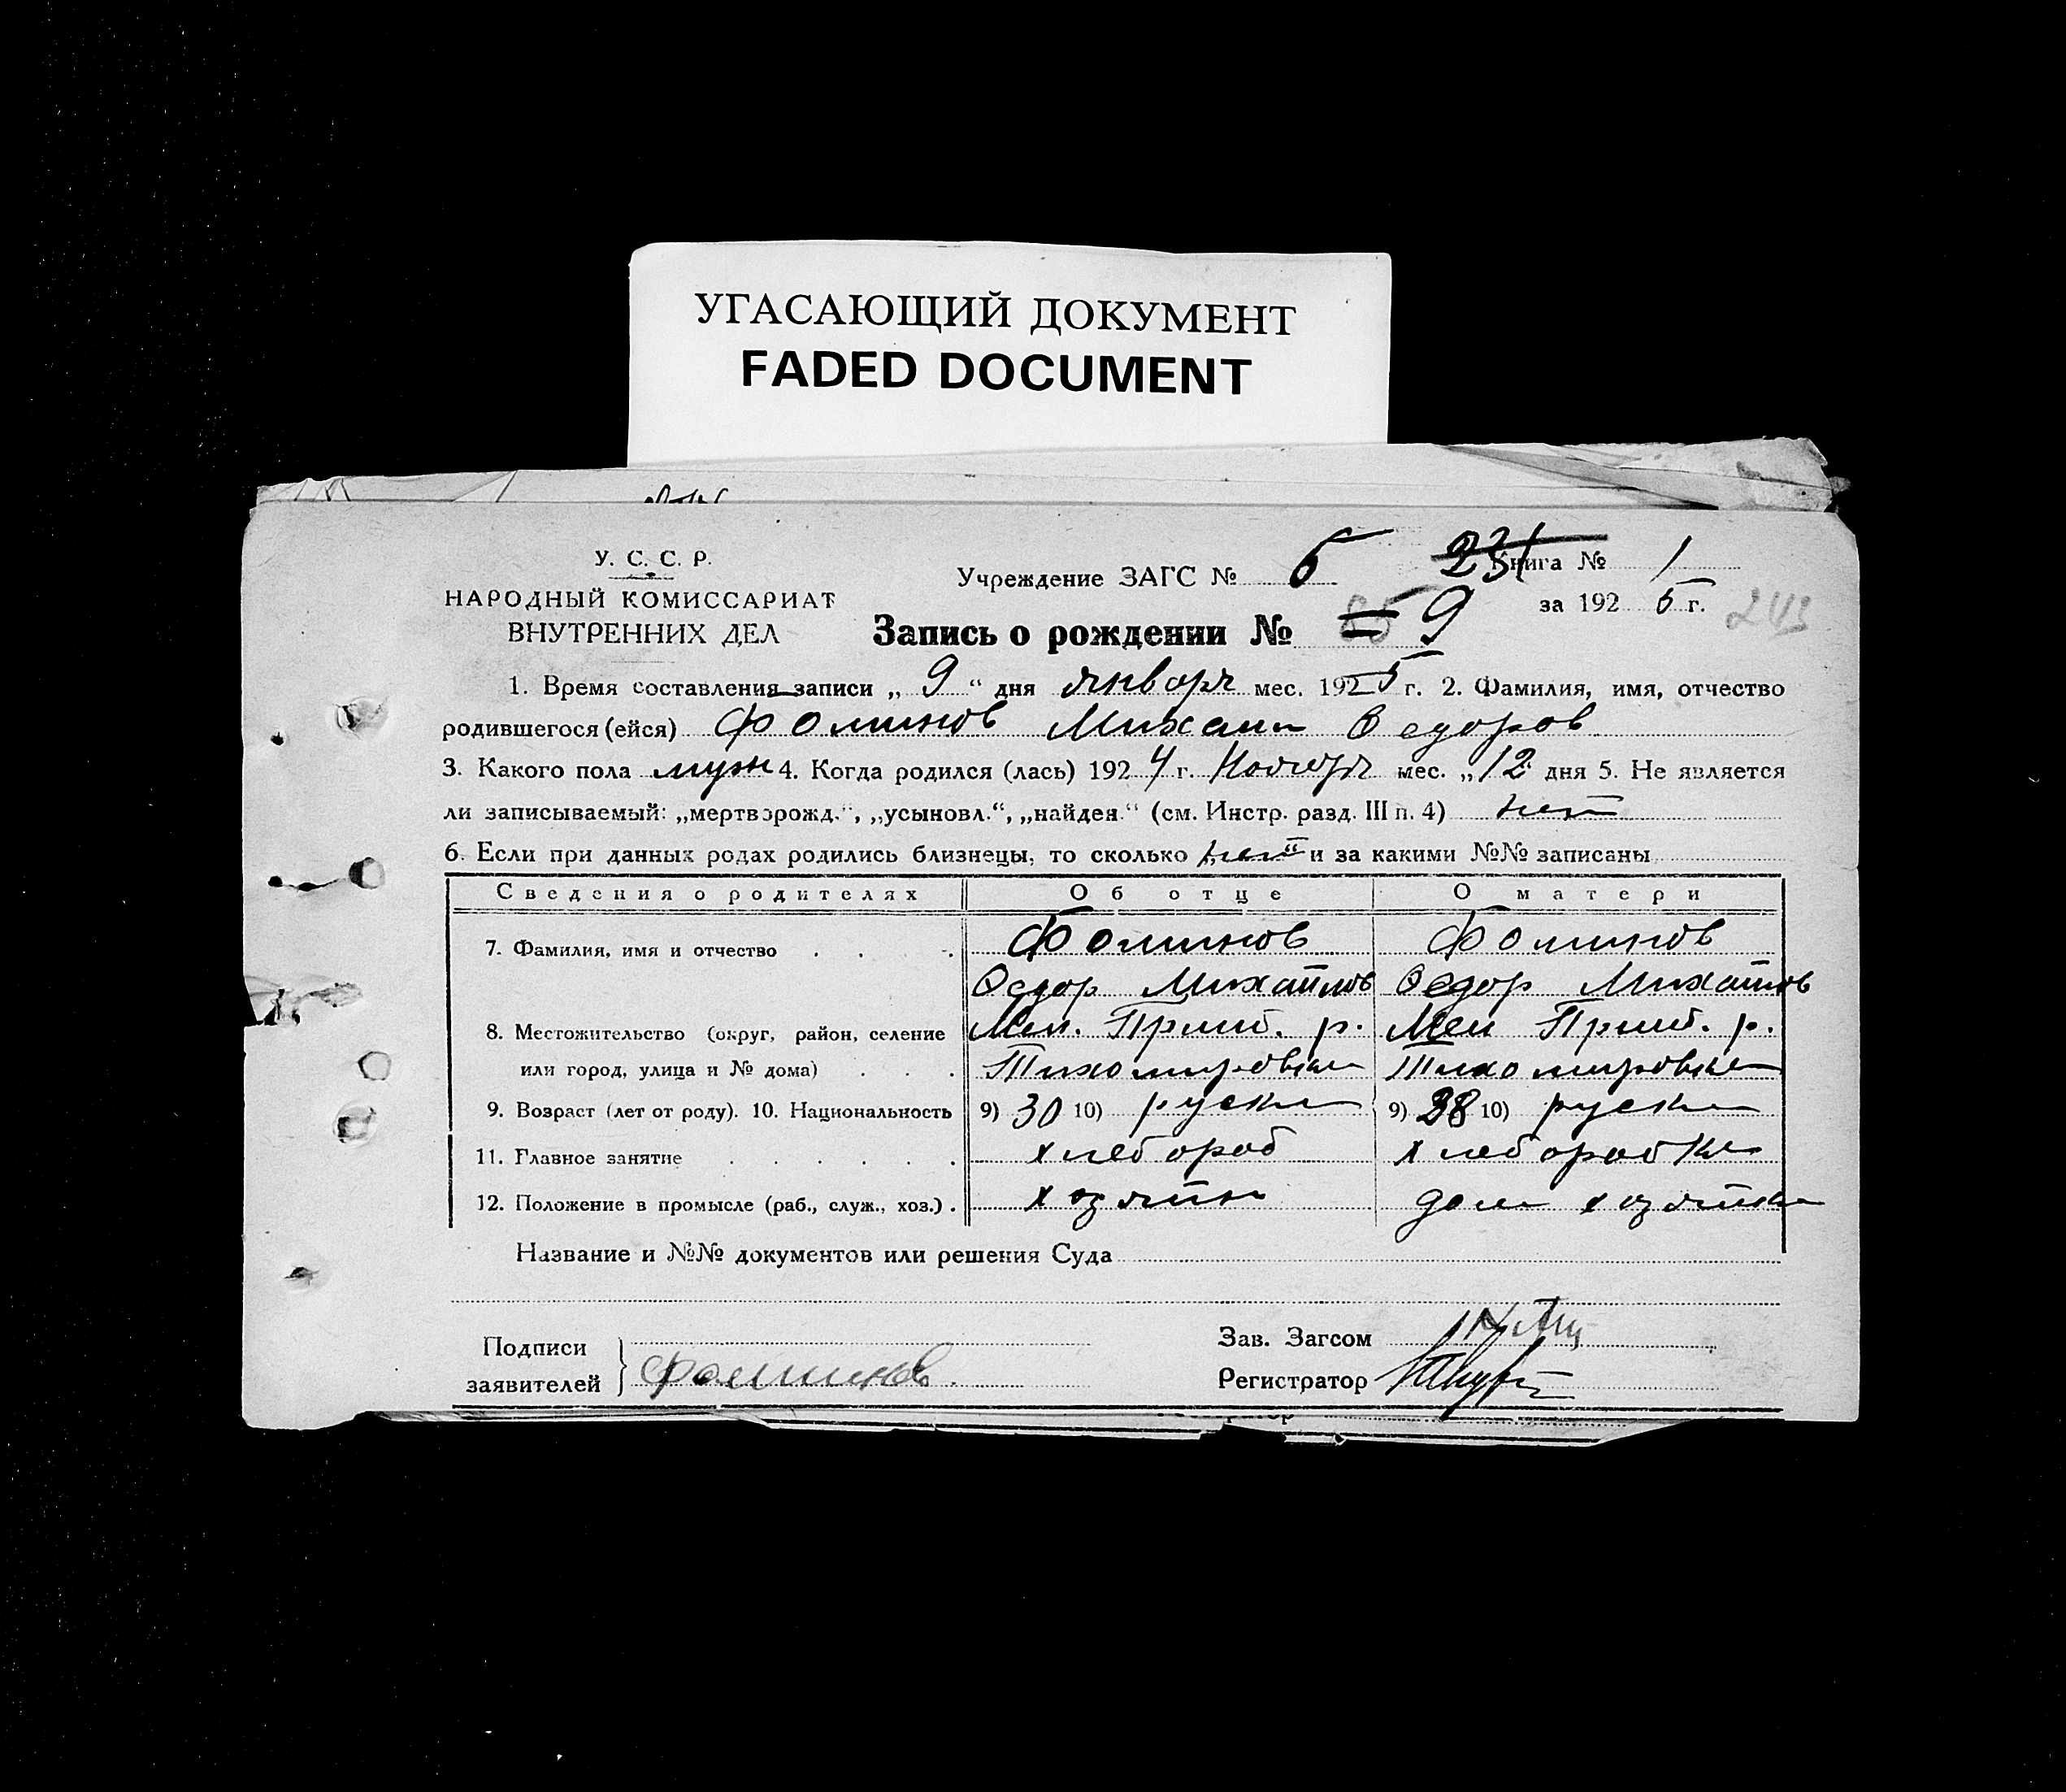 УГАСАЮЩИЙ ДОКУМЕНТ
FADED DOCUMENT
У. С. С. Р.
НАРОДНЫЙ КОМИССАРИАТ
ВНУТРЕННИХ ДЕЛ
Учреждение ЗАГС № 5 231 Книга № 1
за 192 5 г. 243
Запись о рождении № 9
1. Время составления записи „ 9 “ дня январь мес. 192 5 г. 2. Фамилия, имя, отчество
родившегося (ейся) Фоминов Михаил Федоров
3. Какого пола муж 4. Когда родился (лась) 192 4 г. Ноябрь мес. „ 12 дня 5. Не является
ли записываемый: „мертворожд.“, „усыновл.“, „найден.“ (см. Инстр. разд. III п. 4) нет
6. Если при данных родах родились близнецы, то сколько нет и за какими №№ записаны
Сведения о родителях Об отце О матери
7. Фамилия, имя и отчество Фоминов Фоминов
Федор Михайлов Федор Михайлов
8. Местожительство (округ, район, селение Мел. Приш. р. Мел Приш. р.
или город, улица и № дома) Тихомировка Тихомировка
9. Возраст (лет от роду). 10. Национальность 9) 30 10) руски 9) 28 10) руски
11. Главное занятие хлебороб хлеборобка
12. Положение в промысле (раб., служ., хоз.) хозяйн дом хозяйка
Название и №№ документов или решения Суда
Подписи Зав. Загсом
заявителей Фоминов. Регистратор